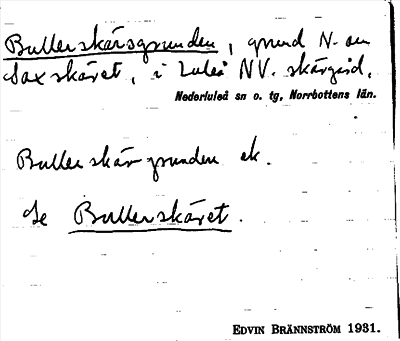 Bullerskärsgrunden, grund N. om
Saxskäret, i Luleå NV. skärgård,
Nederluleå sn o. tg, Norrbottens län.
Bullerskärgrunden ek.
Se Bullerskäret.
EDVIN BRÄNNSTRÖM 1931.